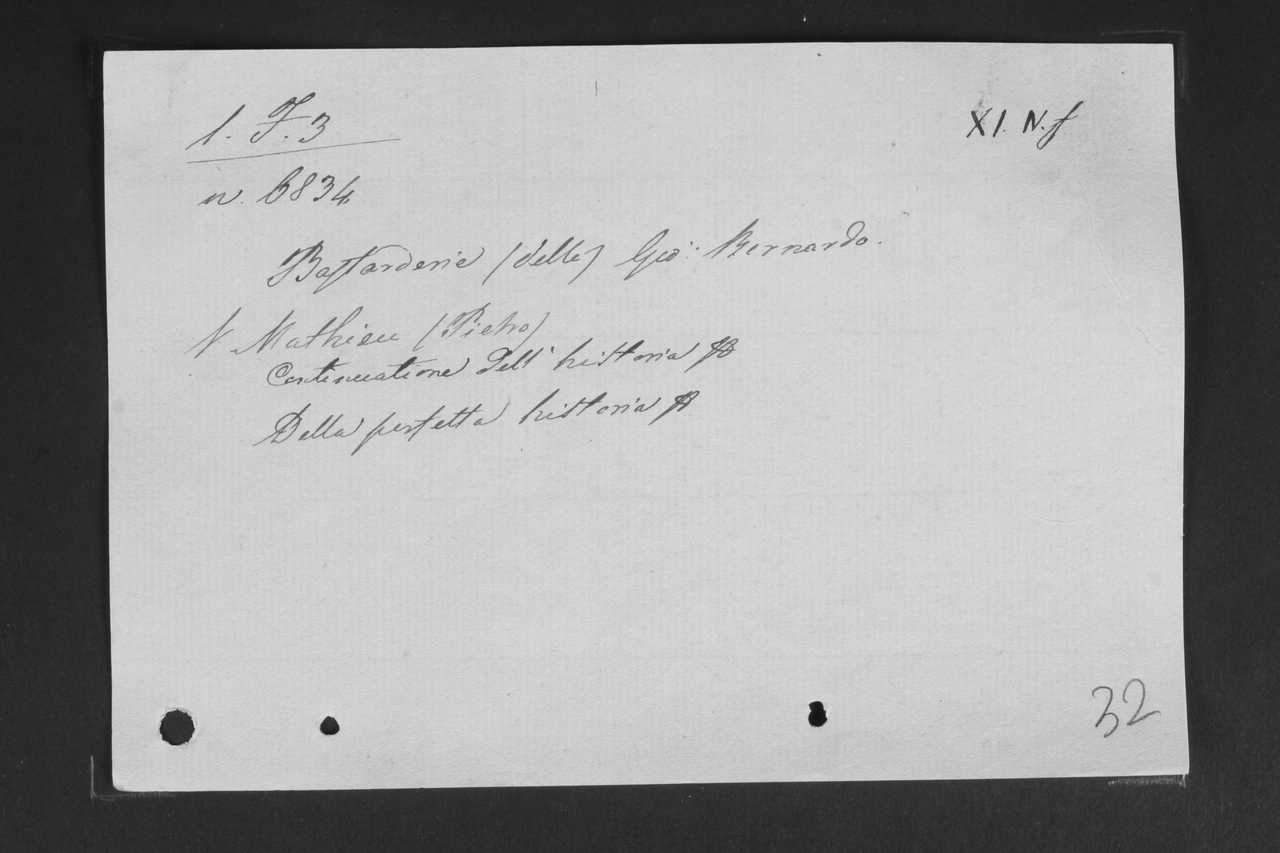 1. F. 3
XI. N. f
n. 6834
Bastarderie (delle) Gio: Bernardo.
V Mathieu (Pietro)
Continuatione dell' historia
Della perfetta historia
32